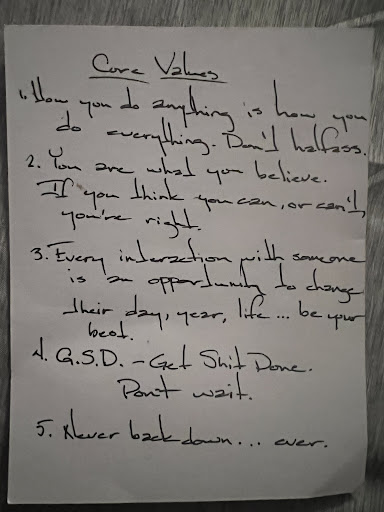 Core Values
1. How you do anything is how you
do everything. Don't halfass.
2. You are what you believe.
If you think you can, or can't,
you're right.
3. Every interaction with someone
is an opportunity to change
their day, year, life... be your
best.
4. G.S.D. - Get Shit Done.
Don't wait.
5. Never back down... ever.